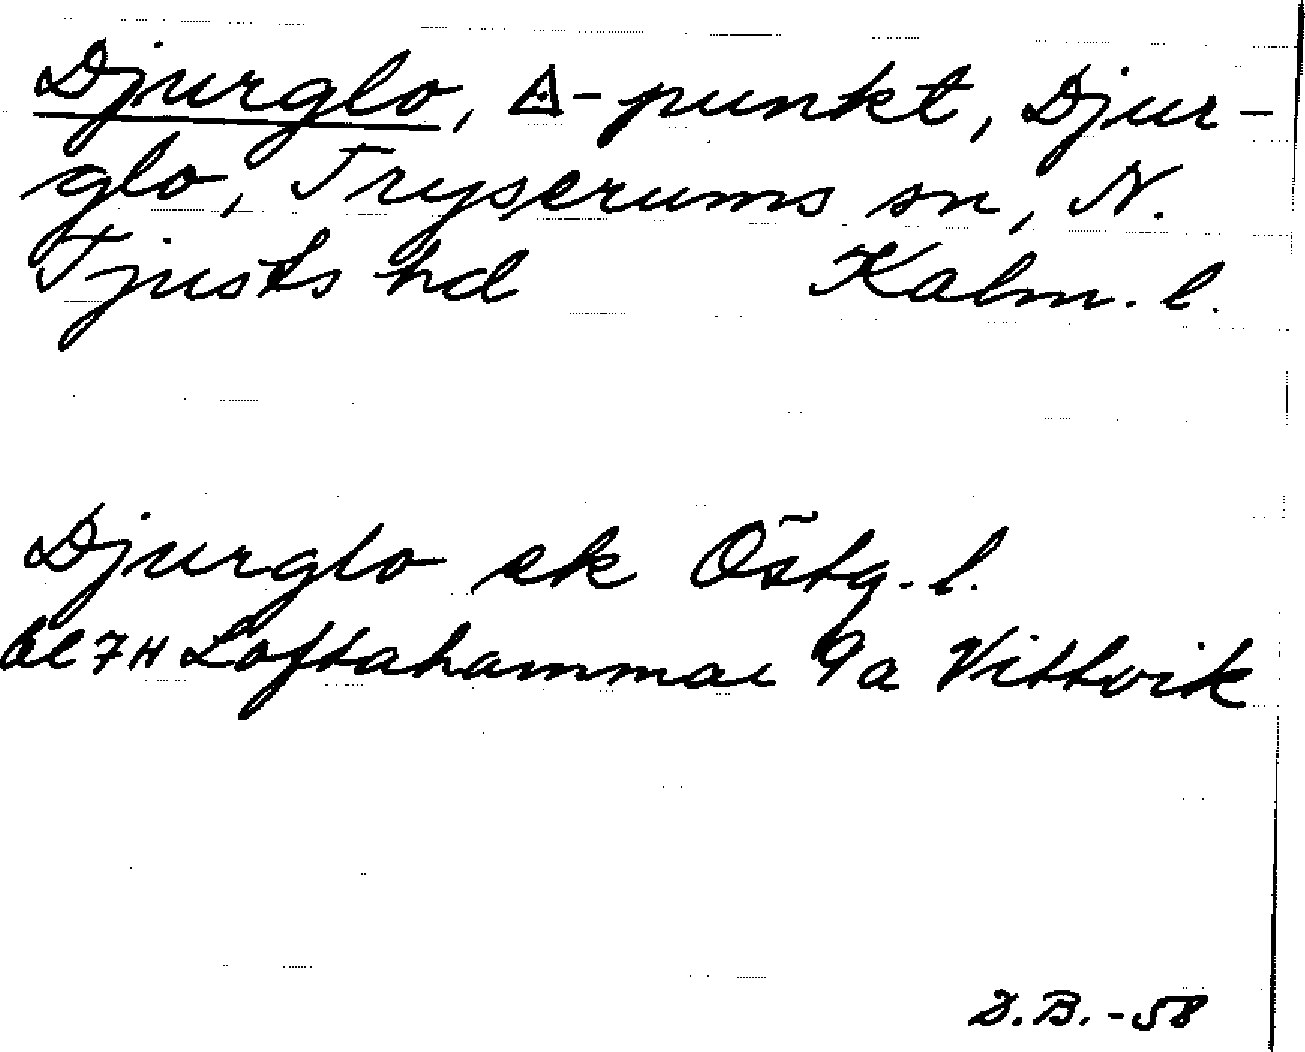 Djurglo, △-punkt, Djur-
glo, Tryserums sn, N.
Tjusts hd Kalm. l.
Djurglo ek Östg. l.
bl 7H Loftahammar 9a Vittvik
D.B. -58